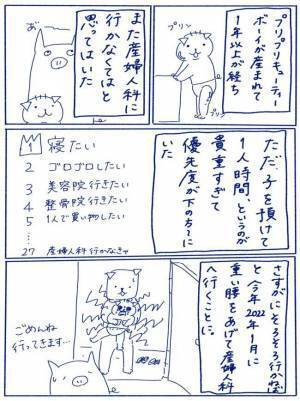 プリプリキューティー
ボーイが産まれて
1年以上が経ち
プリン
プリン
また産婦人科に
行かなくてはと
思ってはいた
ただ、子を預けて
1人時間、というのが
貴重すぎて
優先度が下の方に
いた
1 寝たい
2 ゴロゴロしたい
3 美容院行きたい
4 整骨院行きたい
5 1人で買い物したい
27 産婦人科行かなきゃ
さすがにそろそろ行かねば
と今年2022年1月に
重い腰をあげて産婦人科
へ行くことに。
ごめんね
行ってきます…